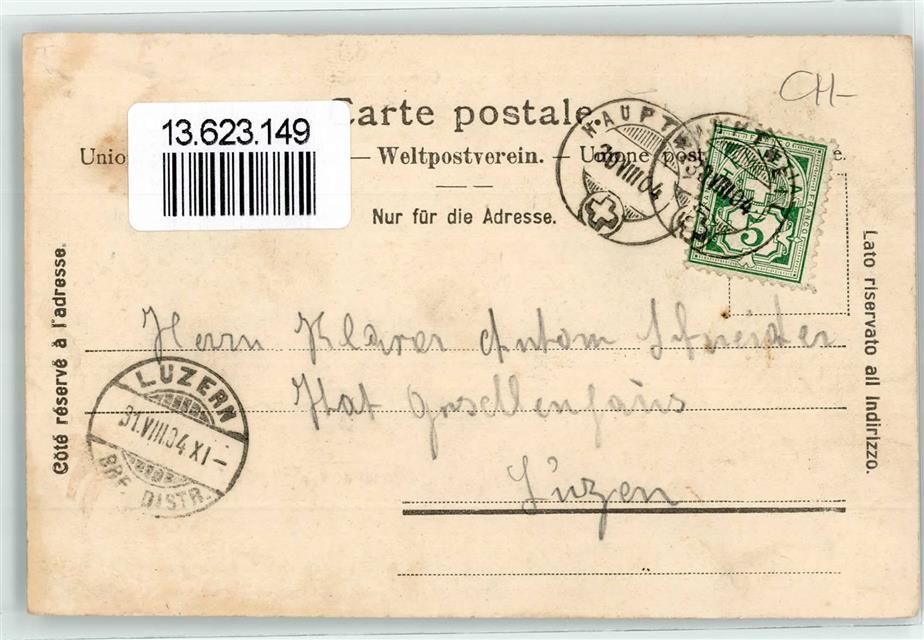 CH-
Carte postale.
13.623.149
Union — Weltpostverein. — Unione post e.
Nur für die Adresse.
HAUPTWEIL
30.VIII.04
HAUPTWEIL
30.VIII.04
FRANCO
5
Côté réservé à l'adresse.
Lato riservato all indirizzo.
Herrn Anton Schneider
LUZERN
31.VIII.04.XI-
BRF. DISTR.
Luzern